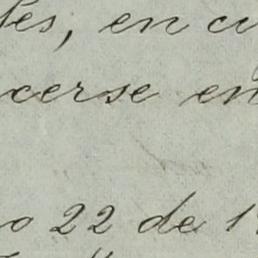 les, en cu
cerse en
o 22 de 1